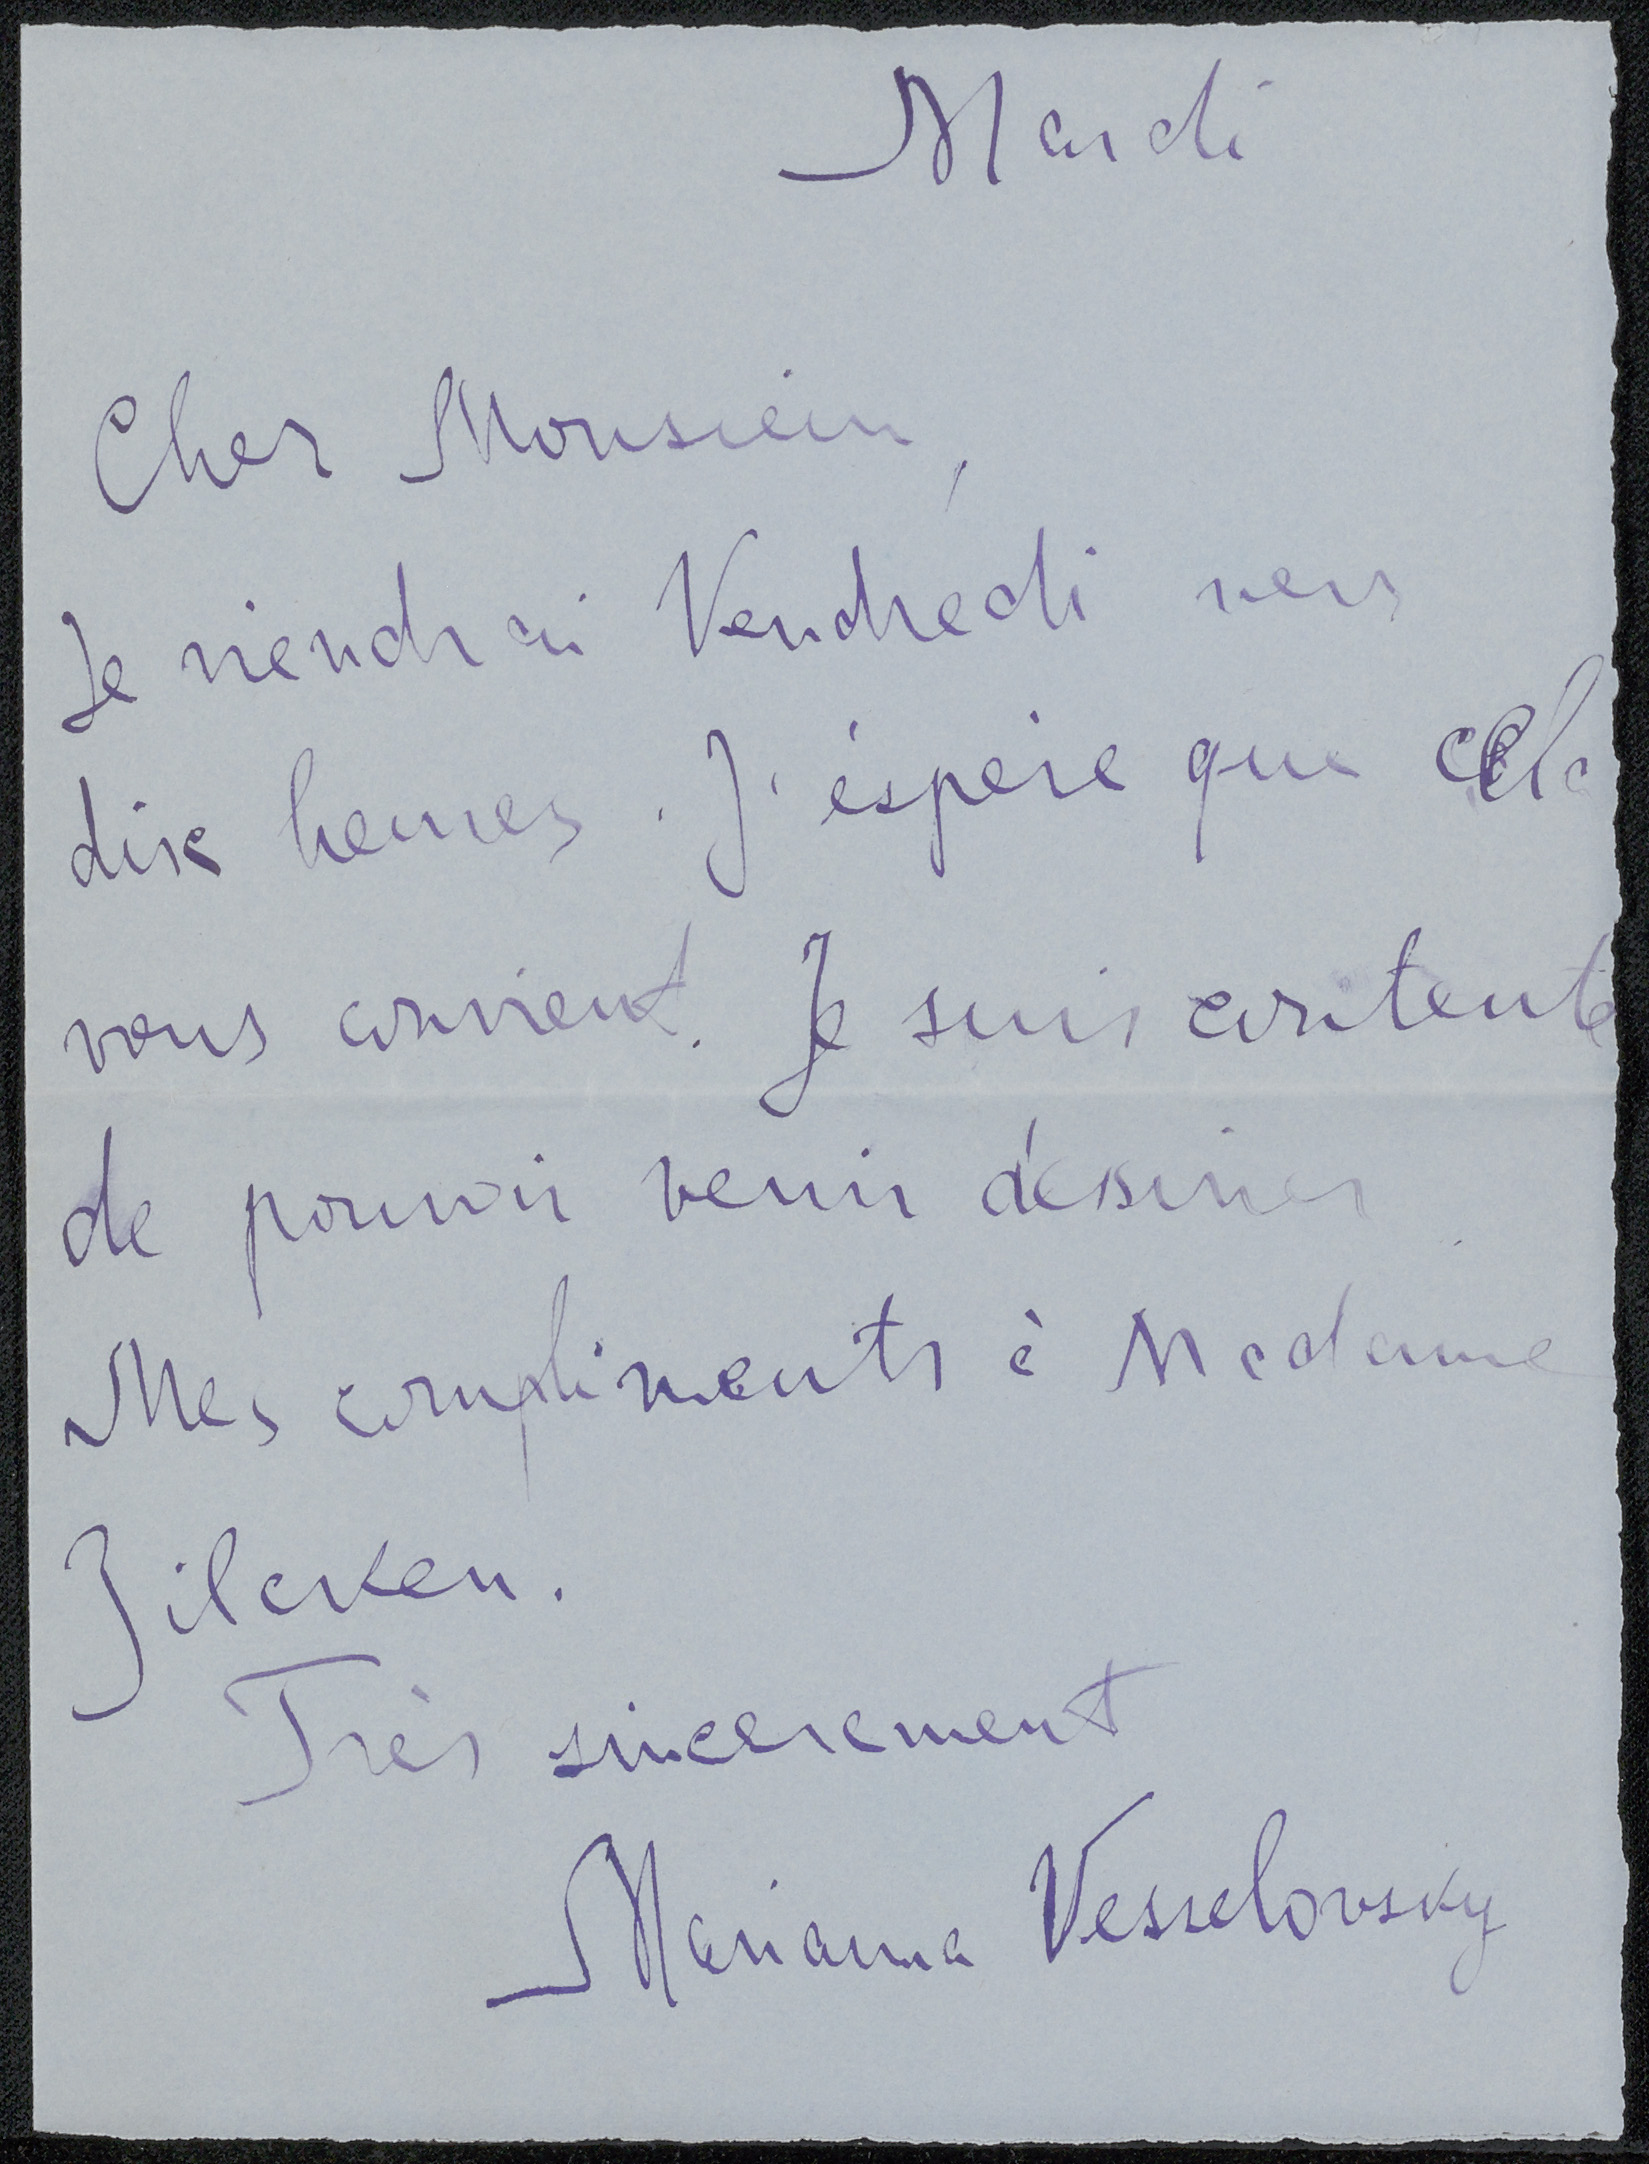 Mardi
Cher Monsieur,
Je viendrai Vendredi vers
dix heures. J'éspère que cela
vous convient. Je suis contente
de pouvoir venir déssiner.
Mes compliments à Madame
Zilcken.
Très sincerement
Marianna Vesselovsky